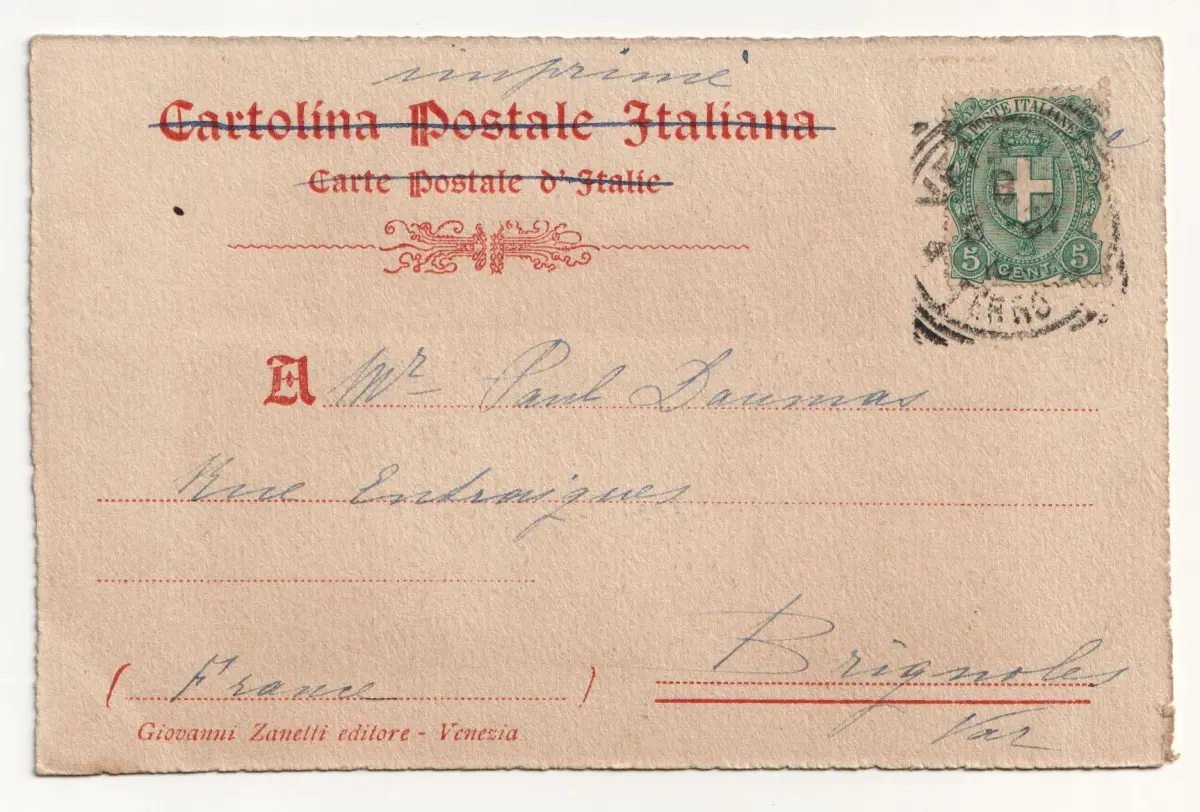 imprimé
Cartolina Postale Italiana
Carte Postale d'Italie
POSTE ITALIANE
5 CENT. 5
A Mr Paul Daumas
Rue Entraigues
Brignoles
( France )
Var
Giovanni Zanetti editore - Venezia